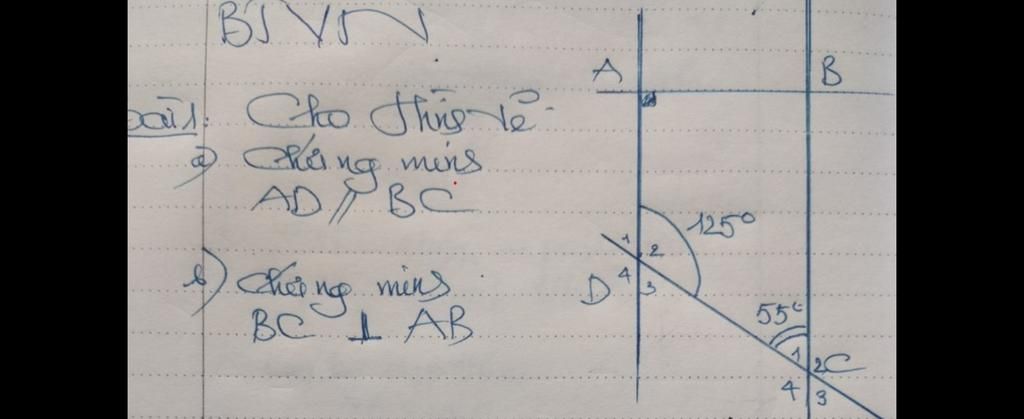 BTVN
Bài 1: Cho hình vẽ.
a) Chứng minh
AD // BC
b) Chứng minh
BC ⊥ AB
A
B
125°
1 2
4 3
D
55°
1 2 C
4 3